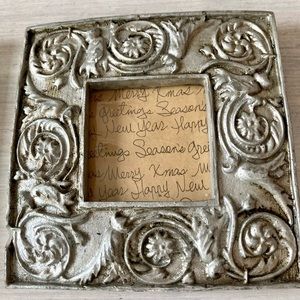 as Merry Xmas
Greetings Season's
New Yeas Happy
Greetings Season's Gree
as Merry Xmas M
Yeas Happy New